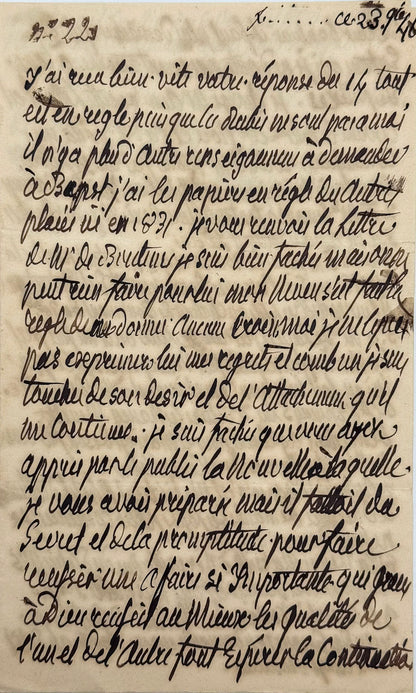 n° 22
F....... ce 23. 9bre 46
J'ai reçu bien vite votre réponse du 14 tout
est en règle puisque les diamans sont para moi
il n'y a plus d'autre renseignement à demander
à Bapst j'ai les papiers en règle du Autre
plaies ici en 1831. je vous renvoie la Lettre
de Mr de je suis bien fachée mais on ne
peut rien faire pour lui mon Neveu s'est fait la
règle de ne donner Aucune Croix moi je ne puis
pas exprimer lui mes regrets et combien je suis
touchée de son desir et de l'Attachement qu'il
me Continue. je suis fachée que vous ayez
appris par le public la Nouvelle à laquelle
je vous avois préparé mais il falloit du
Secret et de la promptitude pour faire
reussir une afaire si Importante qui grace
à Dieu reussit au Mieux les qualités de
l'un et de l'Autre font Espérer la